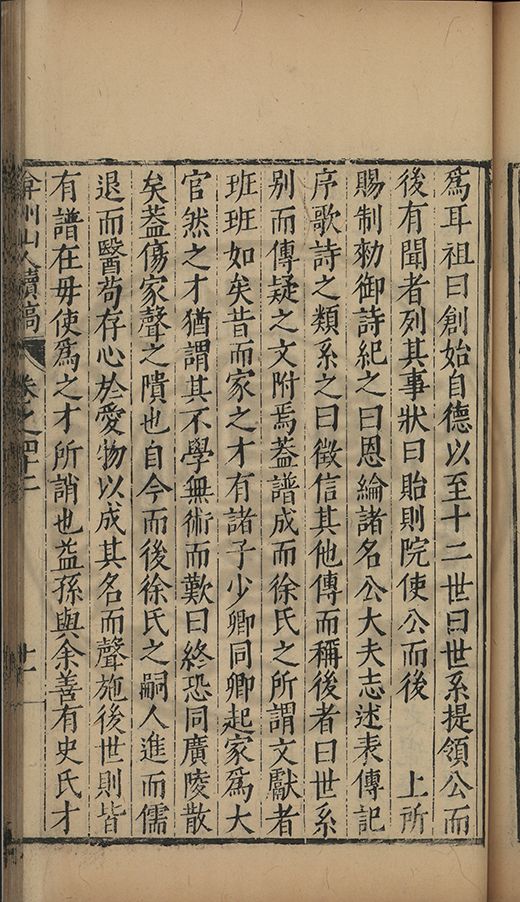 爲耳祖曰創始自德以至十二世曰世系提領公而
後有聞者列其事狀曰貽則院使公而後　上所
賜制勑御詩紀之曰恩綸諸名公大夫志述表傳記
序歌詩之類系之曰徵信其他傳而稱後者曰世系
别而傳疑之文附焉蓋譜成而徐氏之所謂文獻者
班班如矣昔而家之才有諸子少卿同卿起家爲大
官然之才猶謂其不學無術而歎曰終恐同廣陵散
矣蓋傷家聲之隤也自今而後徐氏之嗣人進而儒
退而醫苟存心於愛物以成其名而聲施後世則皆
有譜在毋使爲之才所誚也益孫與余善有史氏才
弇州山人續稿　卷之四十二　十一